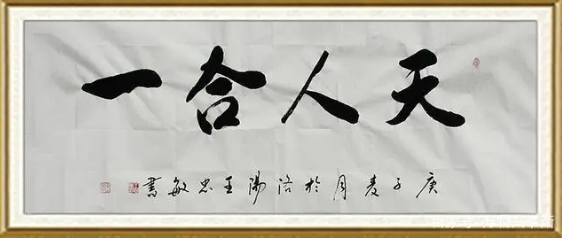 天人合一
庚子麦月于洛陽王忠敏書